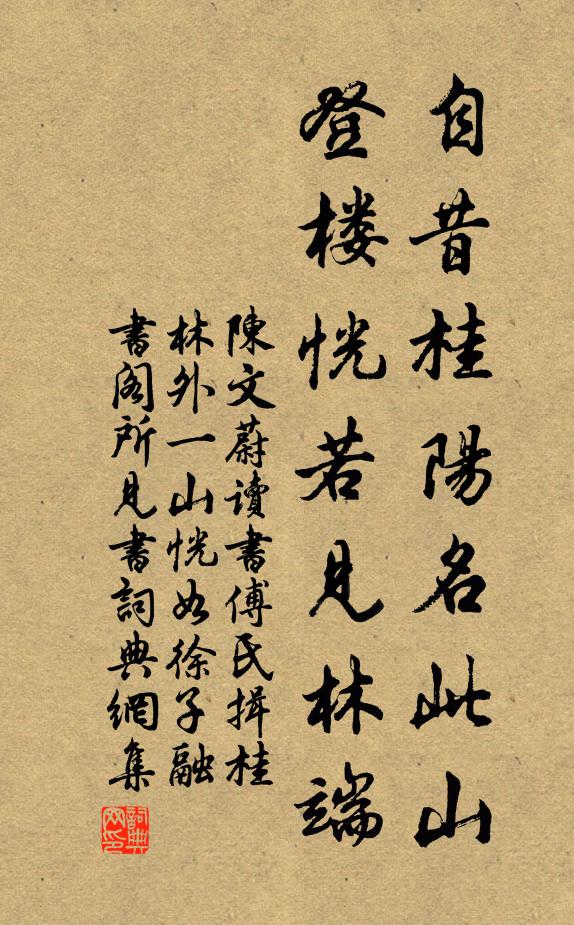 自昔桂陽名此山
登楼恍若見林端
陳文蔚讀書傅氏揖桂
林外一山恍如徐子融
書閣所見書詞典網集
詞典网印